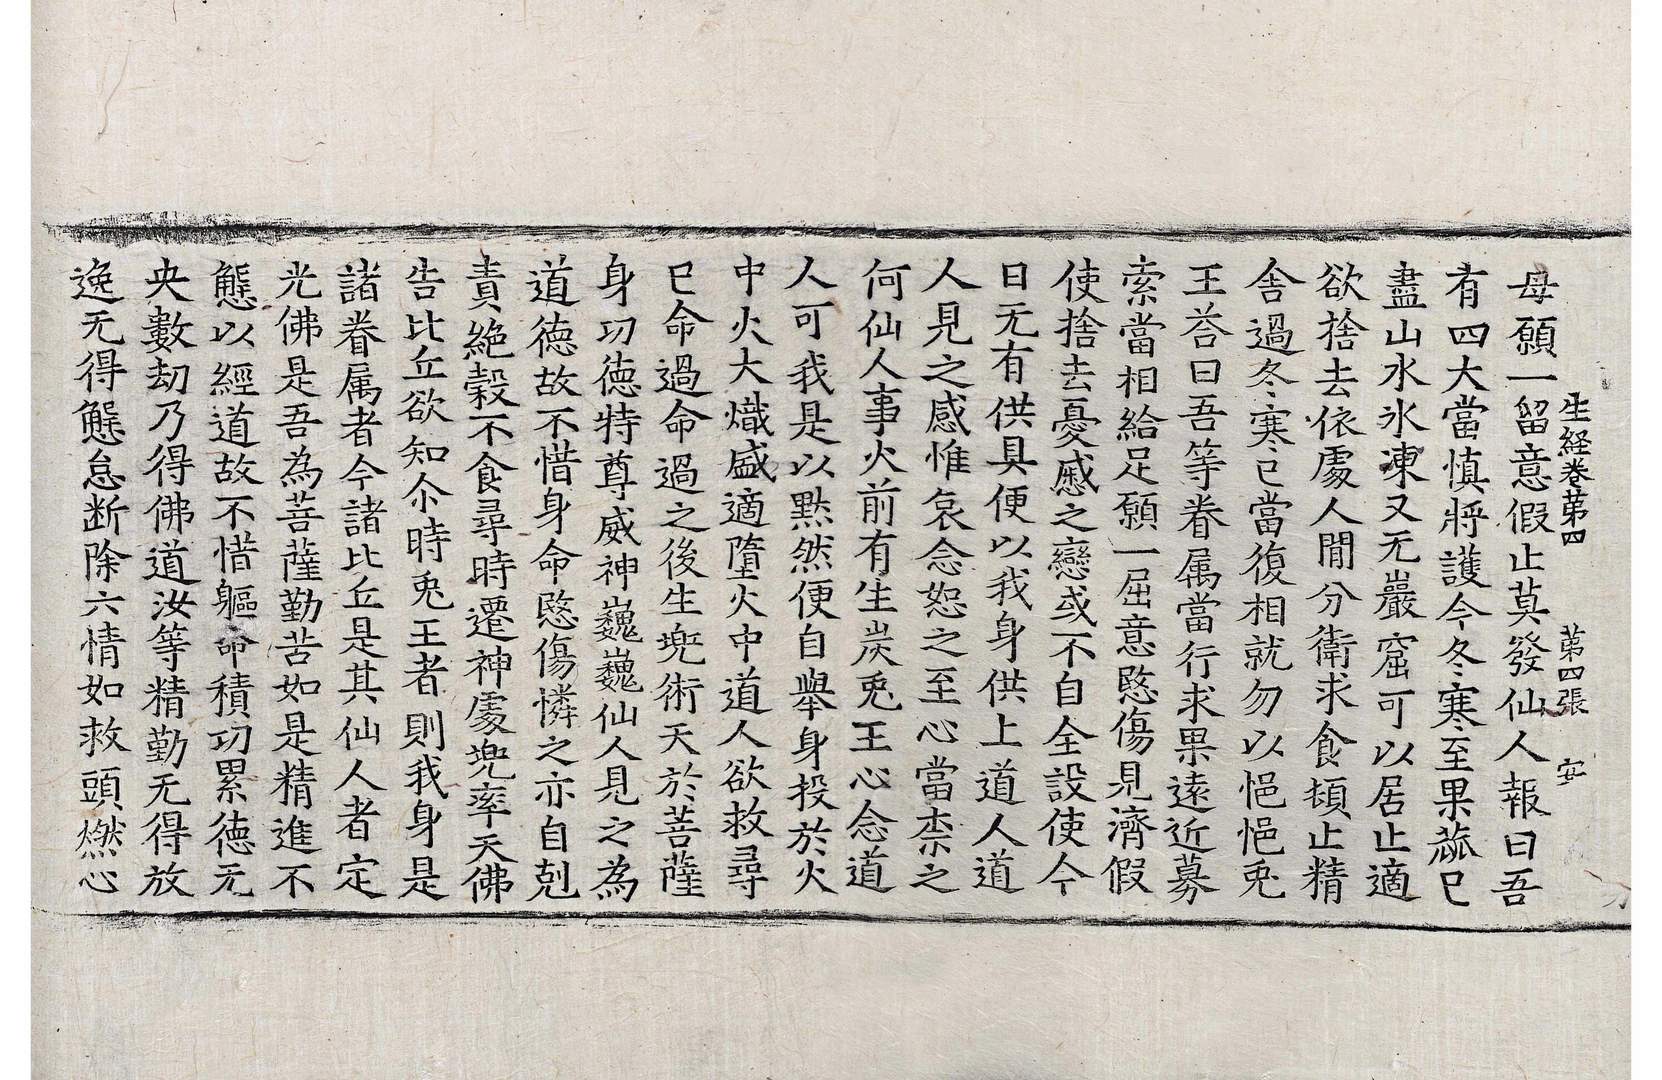 生経巻苐四 苐四張 安
母願一留意假止莫發仙人報曰吾
有四大當慎將護今冬寒至果蓏已
盡山水氷凍又无巖窟可以居止適
欲捨去依處人閒分衛求食頓止精
舍過冬寒已當復相就勿以悒悒兎
王荅曰吾等眷属當行求果遠近募
索當相給足願一屈意愍傷見濟假
使捨去憂慼之戀或不自全設使今
日无有供具便以我身供上道人道
人見之感惟哀念恕之至心當柰之
何仙人事火前有生炭兎王心念道
人可我是以黙然便自舉身投於火
中火大熾盛適墮火中道人欲救尋
已命過命過之後生兜術天於菩薩
身功徳特尊威神巍巍仙人見之為
道徳故不惜身命愍傷憐之亦自剋
責絶糓不食尋時遷神處兜率天佛
告比丘欲知尒時兎王者則我身是
諸眷属者今諸比丘是其仙人者定
光佛是吾為菩薩勤苦如是精進不
懈以經道故不惜軀命積功累徳无
央數劫乃得佛道汝等精勤无得放
逸无得懈怠断除六情如救頭燃心